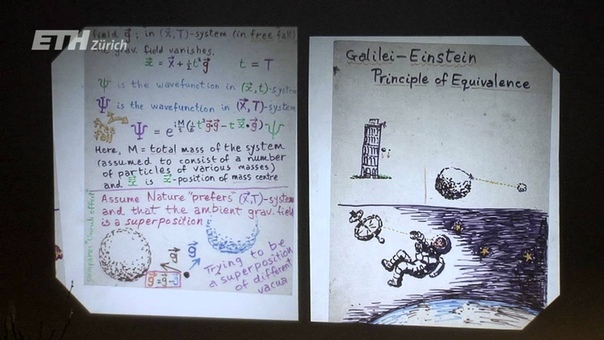 ETH Zürich
field g⃗; in (X⃗,T)-system (in free fall)
grav. field vanishes.
x⃗ = X⃗ + ½t²g⃗ t = T
ψ is the wavefunction in (x⃗,t)-system
Ψ is the wavefunction in (X⃗,T)-system
Here, M = total mass of the system
(assumed to consist of a number
of particles of various masses)
and x̄ is x⃗-position of mass centre
Assume Nature "prefers" (X⃗,T)-system
and that the ambient grav. field
is a superposition:
Trying to be
a superposition
of different
vacua
Galilei–Einstein
Principle of Equivalence